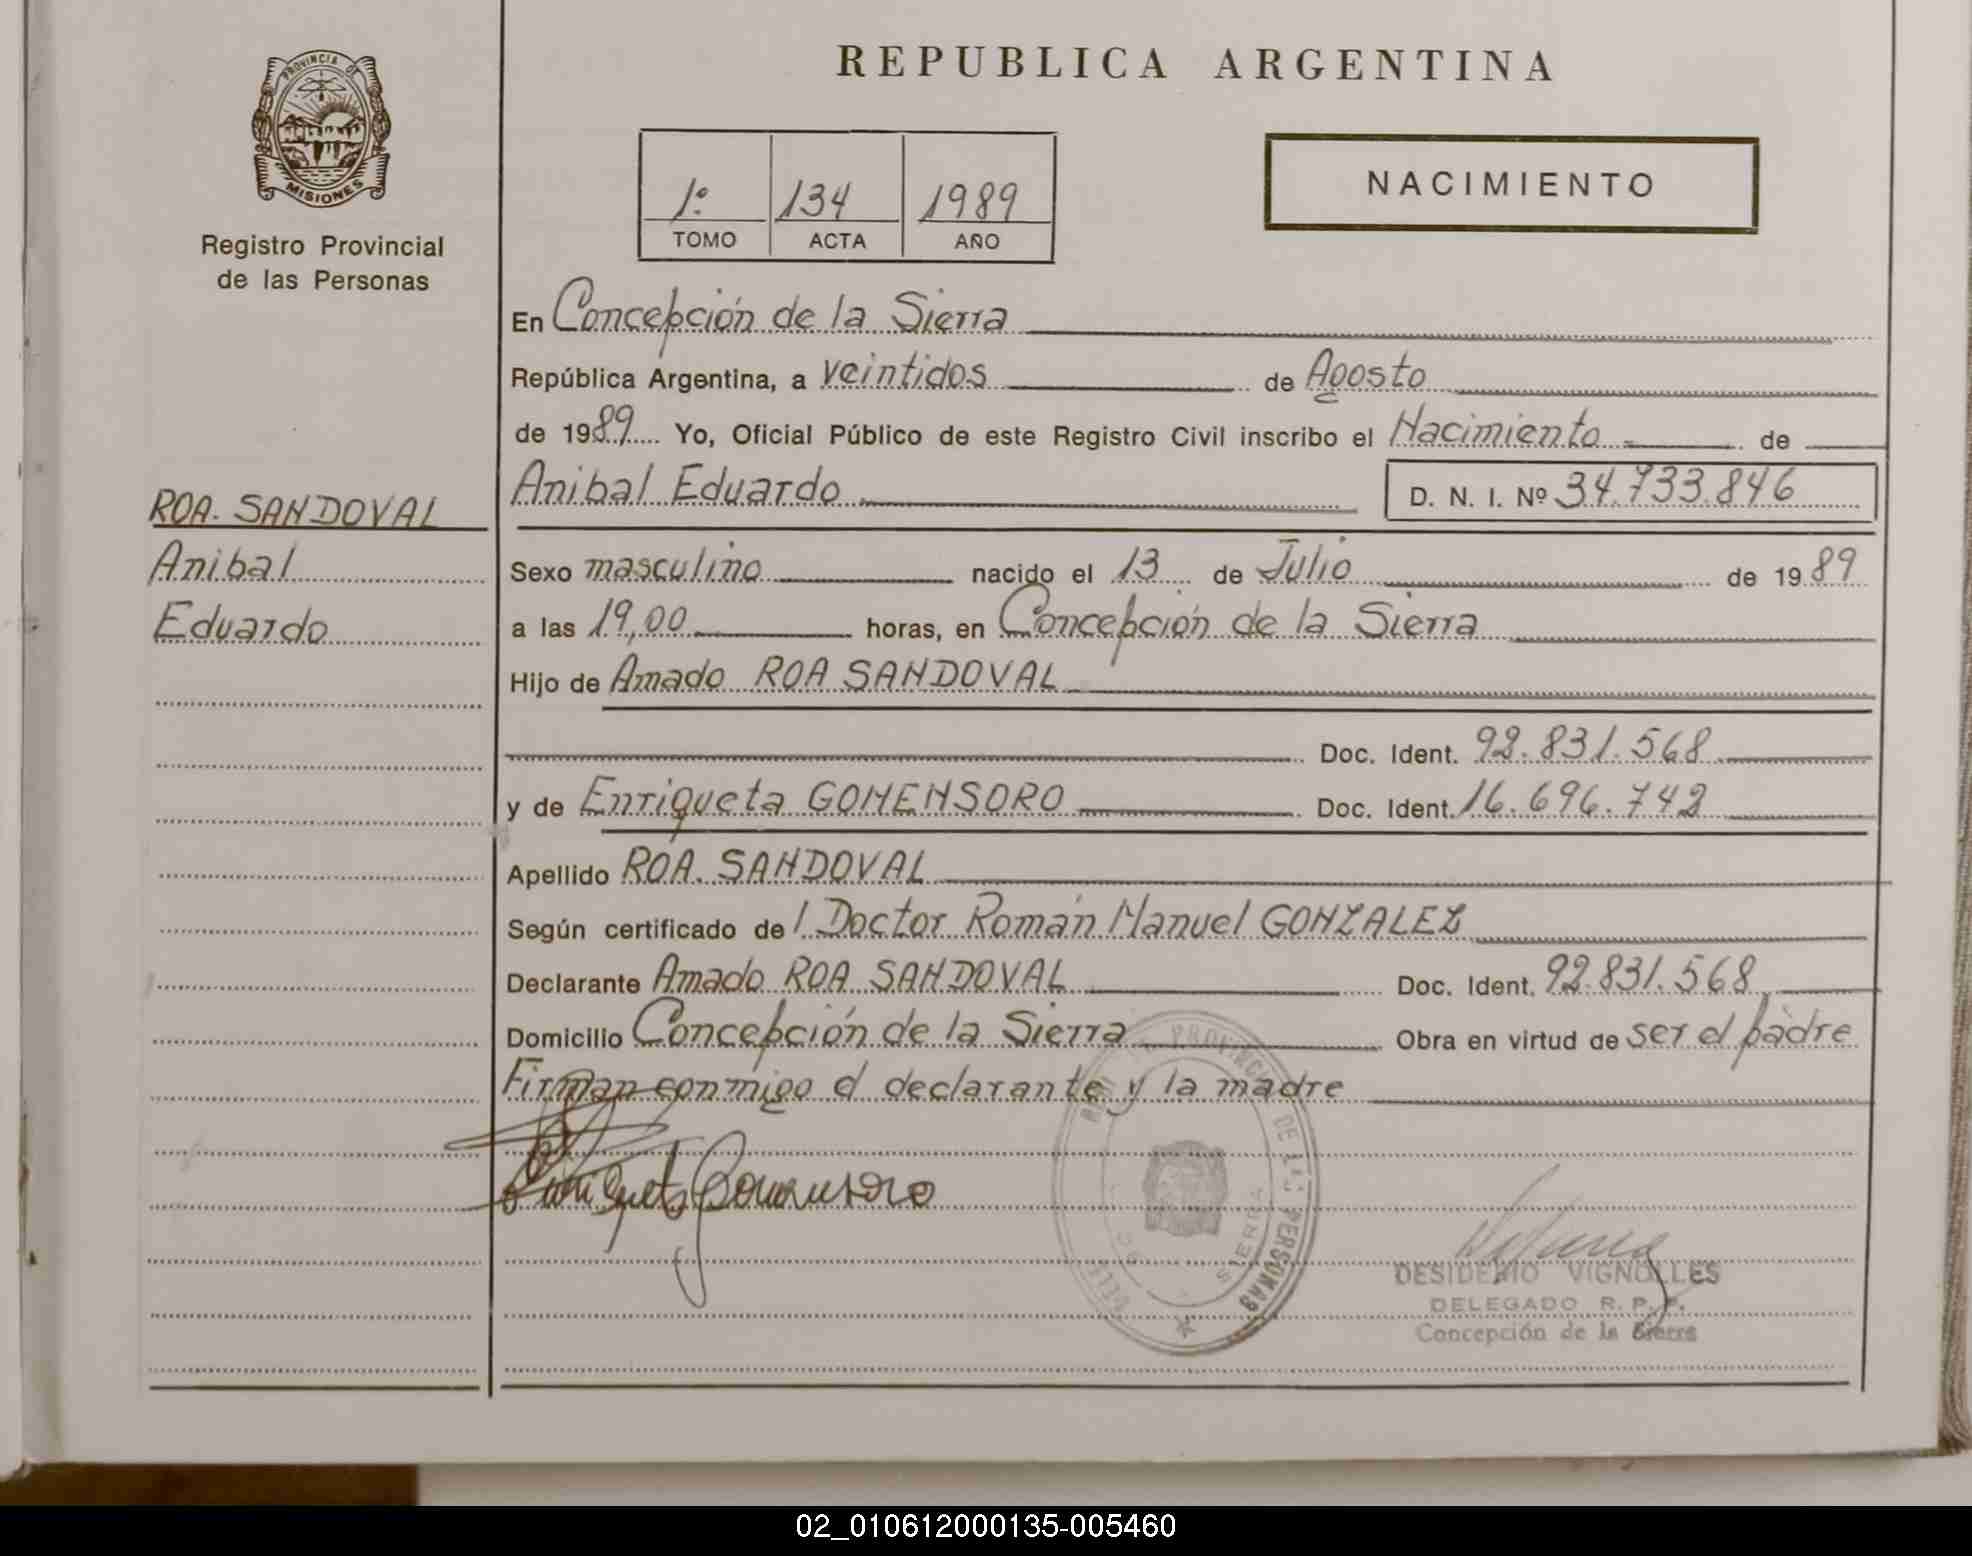 REPUBLICA ARGENTINA
PROVINCIA DE
MISIONES
Registro Provincial
de las Personas
1º 134 1989
TOMO ACTA AÑO
NACIMIENTO
En Concepción de la Sierra
República Argentina, a veintidos de Agosto
de 1989 Yo, Oficial Público de este Registro Civil inscribo el Nacimiento de
Anibal Eduardo D. N. I. Nº 34.733.846
ROA. SANDOVAL
Anibal
Eduardo
Sexo masculino nacido el 13 de Julio de 1989
a las 19,00 horas, en Concepción de la Sierra
Hijo de Amado ROA SANDOVAL
Doc. Ident. 92.831.568
y de Enriqueta GOMENSORO Doc. Ident. 16.696.742
Apellido ROA. SANDOVAL
Según certificado del Doctor Román Manuel GONZALEZ
Declarante Amado ROA SANDOVAL Doc. Ident. 92.831.568
Domicilio Concepción de la Sierra Obra en virtud de ser el padre
Firman conmigo el declarante y la madre
Enriqueta Gomensoro
PROVINCIAL DE LAS PERSONAS
SIERRA
DESIDERIO VIGNOLLES
DELEGADO R. P. P.
Concepción de la Sierra
02_010612000135-005460